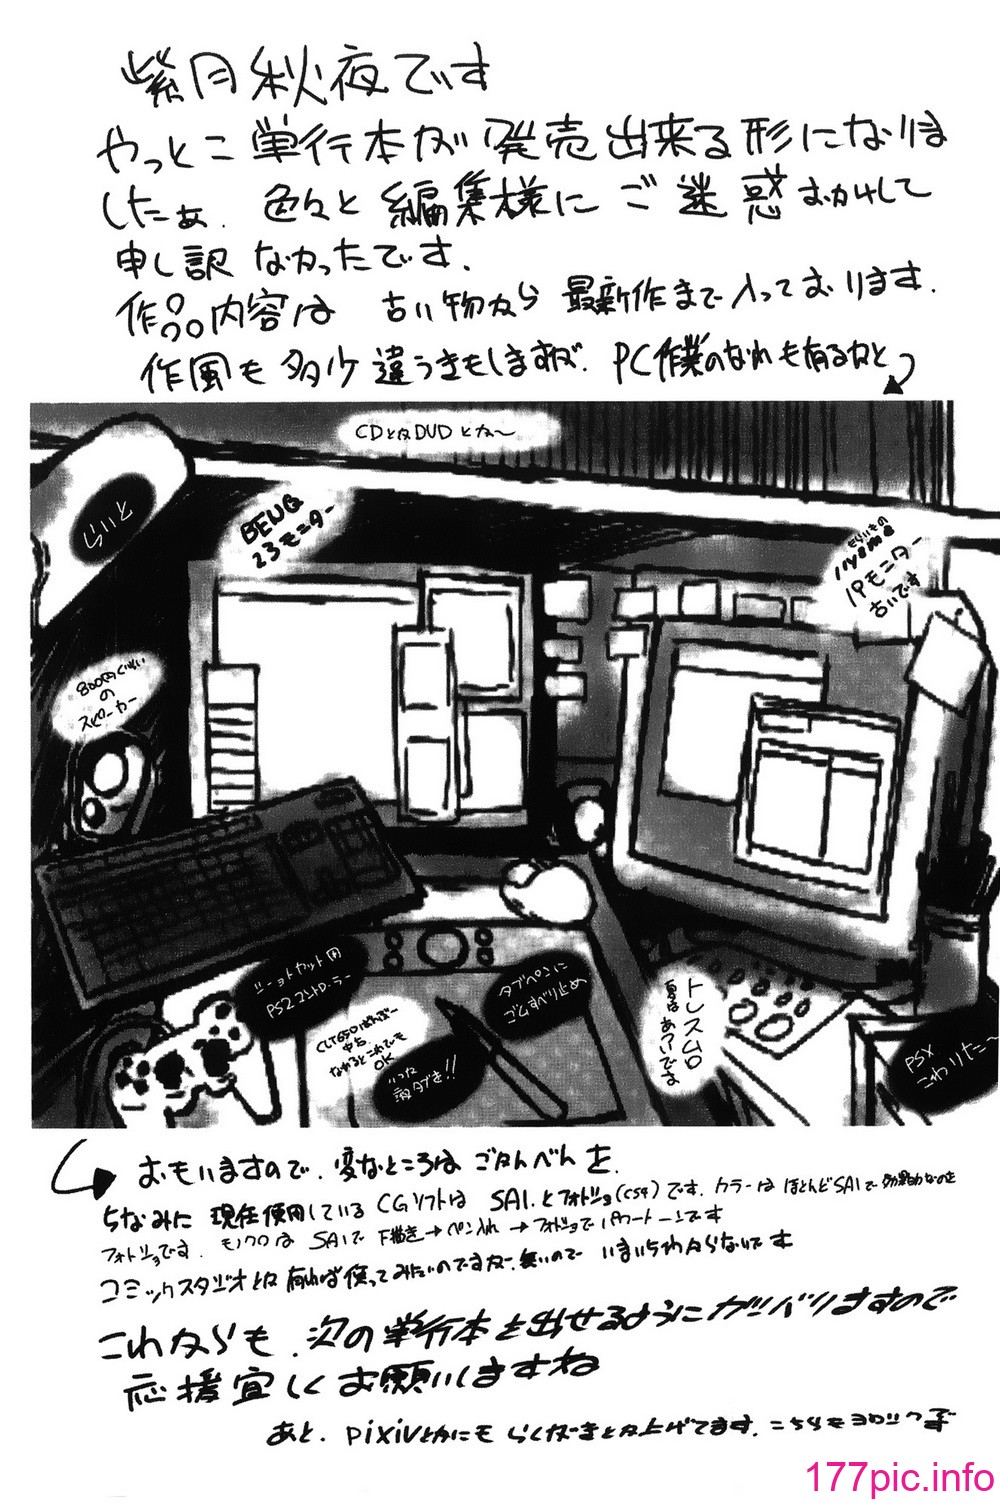 紫月秋夜です
やっとこ単行本が発売出来る形になりま
したぁ。色々と編集様にご迷惑おかけして
申し訳なかったです。
作品内容は 古い物から最新作まで入っております。
作風も多少違うきもしますが、PC作業のなれも有るかと
CDとかDVDとか〜
らいと
BENQ
23モニター
もらいもの
iiyama
19モニター
古いです
800円くらい
の
スピーカー
ショートカット用
PS2コントローラー
タブペンに
ゴムすべり止め
CLT650
中古
なれるとこれでも
OK
いつか
液タブを!!
トレス台
夏はあついです
PSX
こわれた〜
おもいますので、変なところはごかんべんを。
ちなみに 現在使用しているCGソフトは SAI.とフォトショ(CS4)です。カラーは ほとんどSAIで 効果的なのを
フォトショです。モノクロは SAIで 下描き→ペン入れ→フォトショでパワートーンです
コミックスタジオとか有れば使ってみたいのですが、無いので いまいちわからないです
これからも、次の単行本を出せるようにガンバリますので
応援宜しくお願いしますね
あと、pixivとかにもらくがきとか上げてます。こちらもヨロシクです
177pic.info